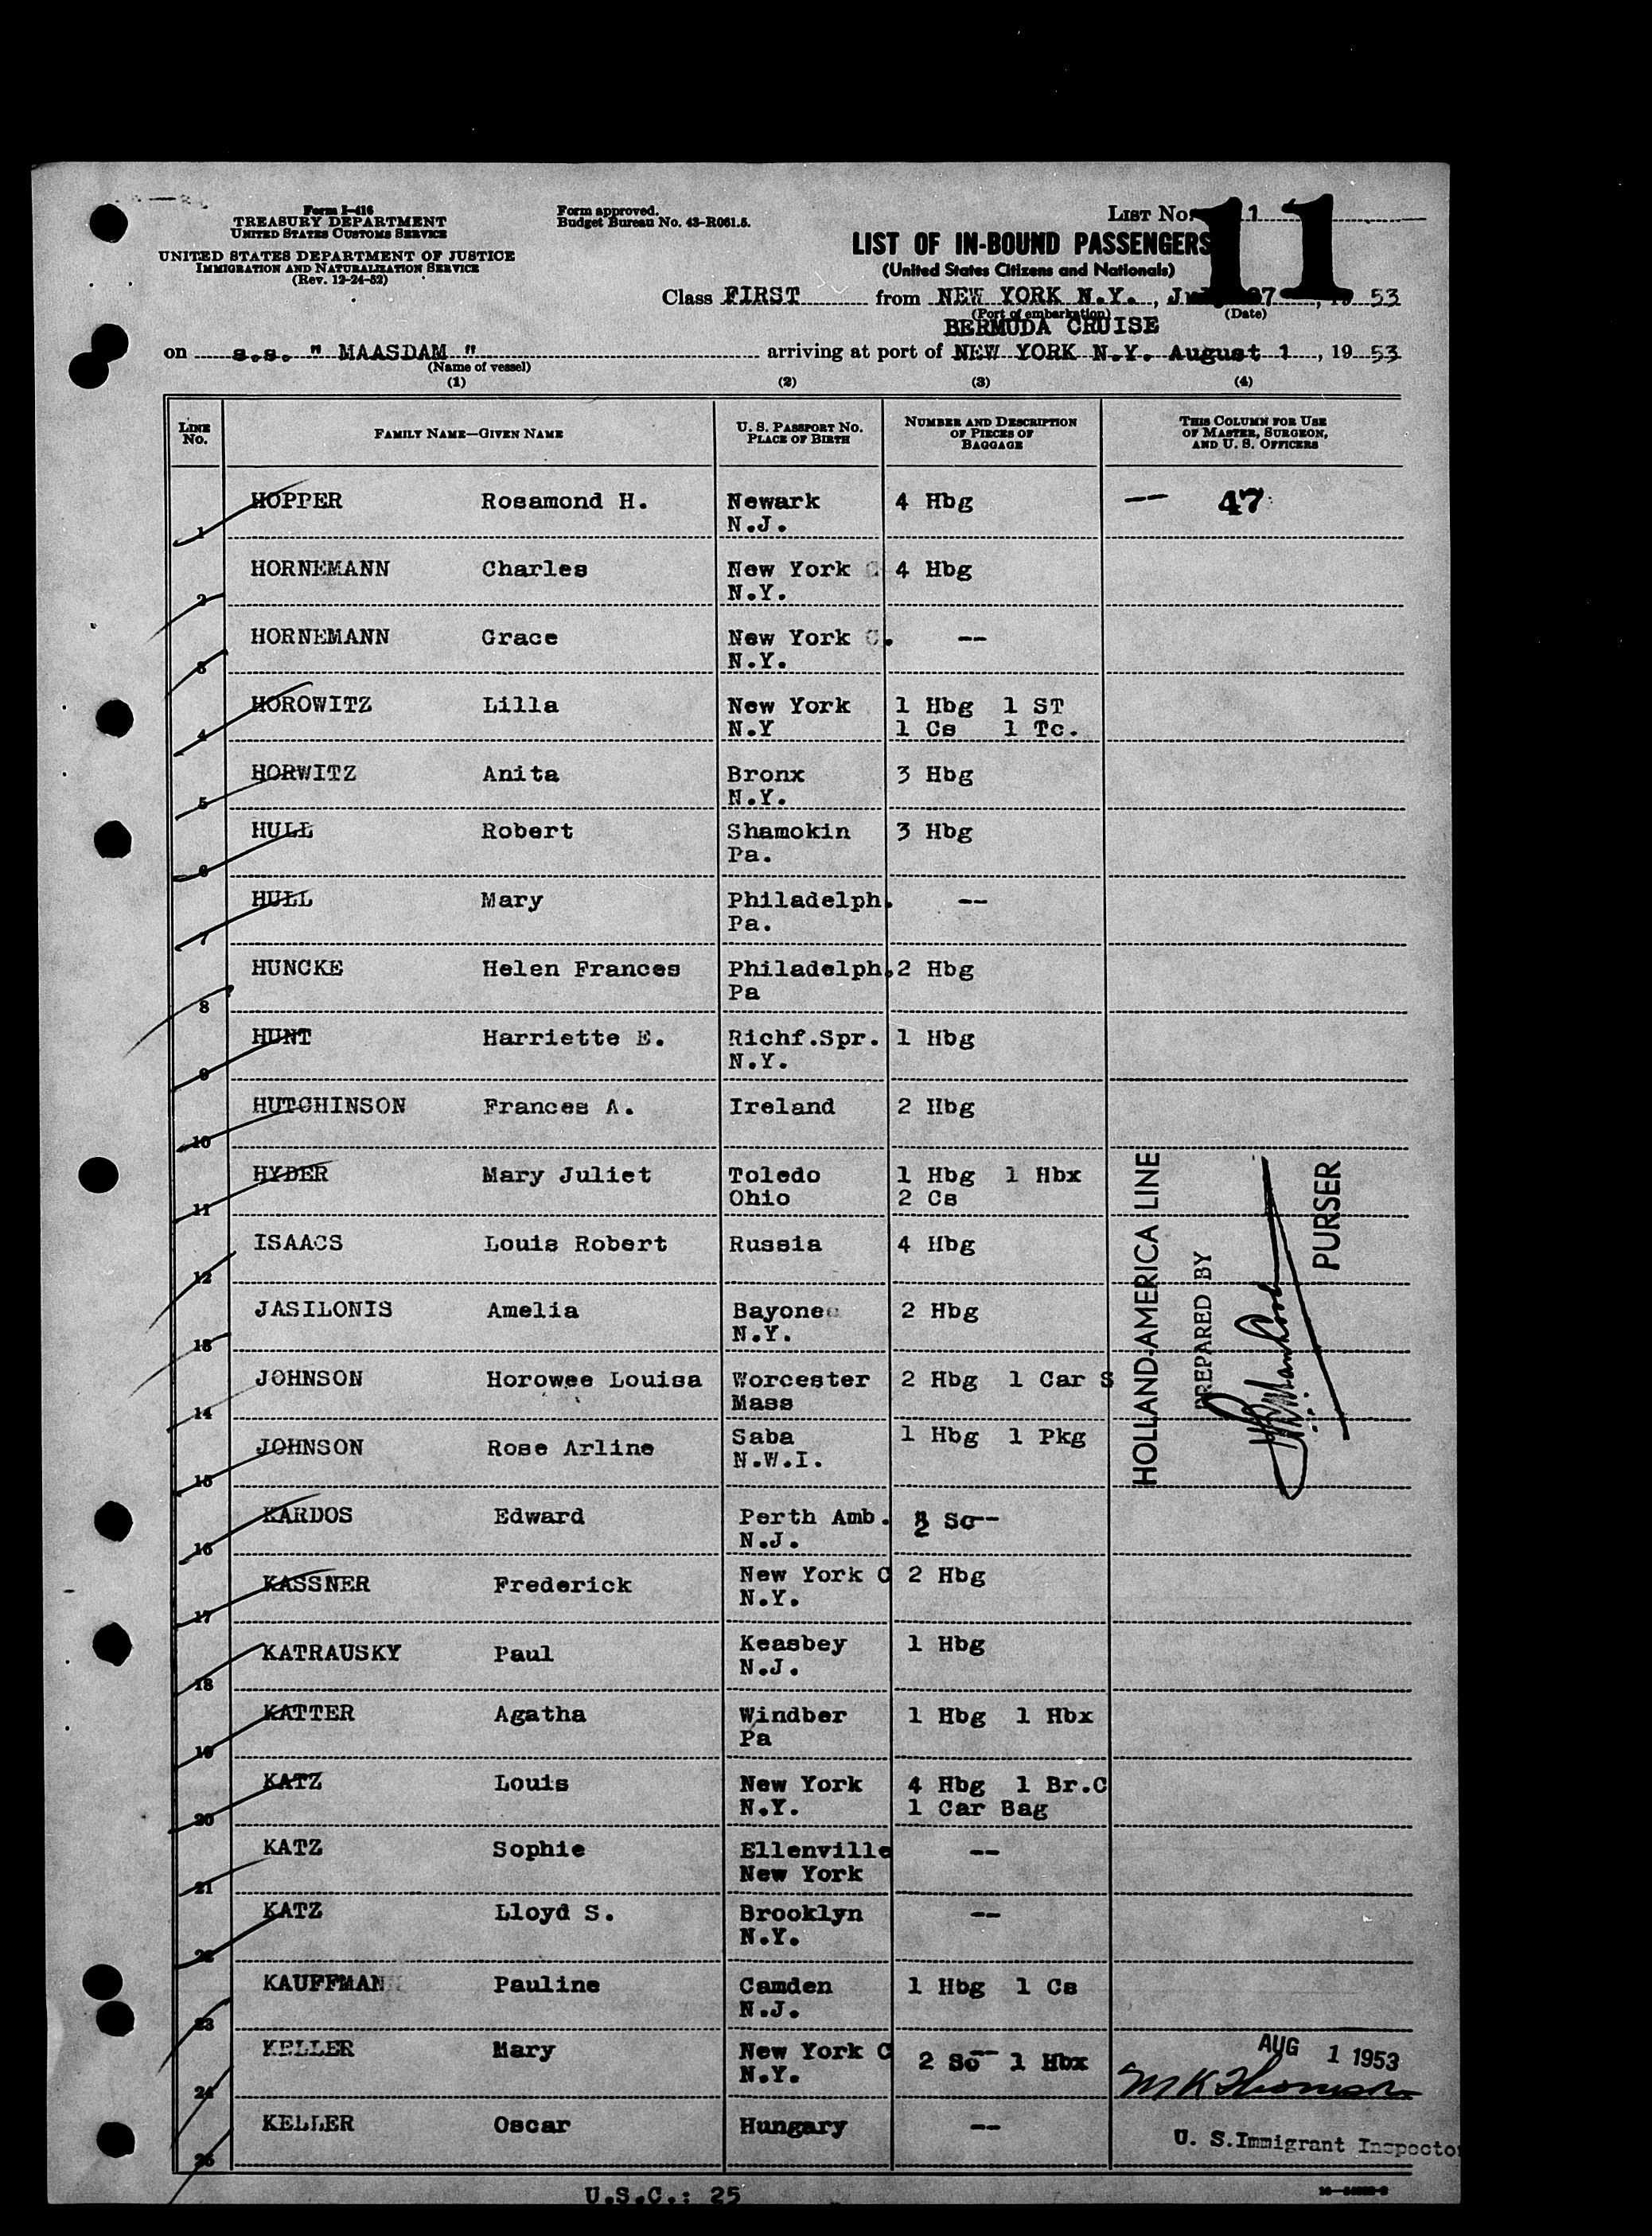 Form I-416
TREASURY DEPARTMENT
UNITED STATES CUSTOMS SERVICE
UNITED STATES DEPARTMENT OF JUSTICE
IMMIGRATION AND NATURALIZATION SERVICE
(Rev. 12-24-52)
Form approved.
Budget Bureau No. 43-R061.5.
LIST No. 11
11
LIST OF IN-BOUND PASSENGERS
(United States Citizens and Nationals)
Class FIRST from NEW YORK N.Y., 27, 19 53
(Port of embarkation) (Date)
BERMUDA CRUISE
on s.s. " MAASDAM " arriving at port of NEW YORK N.Y. August 1, 19 53
(Name of vessel)
(1) (2) (3) (4)
LINE No. FAMILY NAME—GIVEN NAME U. S. PASSPORT No. PLACE OF BIRTH NUMBER AND DESCRIPTION OF PIECES OF BAGGAGE THIS COLUMN FOR USE OF MASTER, SURGEON, AND U. S. OFFICERS
1 HOPPER Rosamond H. Newark 4 Hbg -- 47
N.J.
2 HORNEMANN Charles New York C 4 Hbg
N.Y.
3 HORNEMANN Grace New York C. --
N.Y.
4 HOROWITZ Lilla New York 1 Hbg 1 ST
N.Y 1 Cs 1 Tc.
5 HORWITZ Anita Bronx 3 Hbg
N.Y.
6 HULL Robert Shamokin 3 Hbg
Pa.
7 HULL Mary Philadelph. --
Pa.
8 HUNCKE Helen Frances Philadelph. 2 Hbg
Pa
9 HUNT Harriette E. Richf.Spr. 1 Hbg
N.Y.
10 HUTCHINSON Frances A. Ireland 2 Hbg
11 HYDER Mary Juliet Toledo 1 Hbg 1 Hbx
Ohio 2 Cs
12 ISAACS Louis Robert Russia 4 Hbg
13 JASILONIS Amelia Bayonee 2 Hbg
N.Y.
14 JOHNSON Horowee Louisa Worcester 2 Hbg 1 Car S
Mass
15 JOHNSON Rose Arline Saba 1 Hbg 1 Pkg
N.W.I.
16 KARDOS Edward Perth Amb. 2 Sc--
N.J.
17 KASSNER Frederick New York C 2 Hbg
N.Y.
18 KATRAUSKY Paul Keasbey 1 Hbg
N.J.
19 KATTER Agatha Windber 1 Hbg 1 Hbx
Pa
20 KATZ Louis New York 4 Hbg 1 Br.C
N.Y. 1 Car Bag
21 KATZ Sophie Ellenville --
New York
22 KATZ Lloyd S. Brooklyn --
N.Y.
23 KAUFFMANN Pauline Camden 1 Hbg 1 Cs
N.J.
24 KELLER Mary New York C 2 Sc-- 1 Hbx
N.Y.
25 KELLER Oscar Hungary --
HOLLAND-AMERICA LINE
PREPARED BY
PURSER
AUG 1 1953
M K Thompson
U. S. Immigrant Inspector
U.S.C.: 25